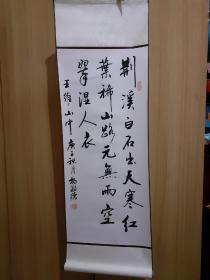 荆溪白石出天寒红
葉稀山路元無雨空
翠湿人衣
王维山中 庚子秋月 楊